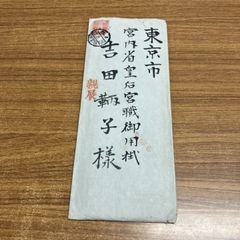 東京市
宮内省皇后宮職御用掛
吉田鞆子様
親展